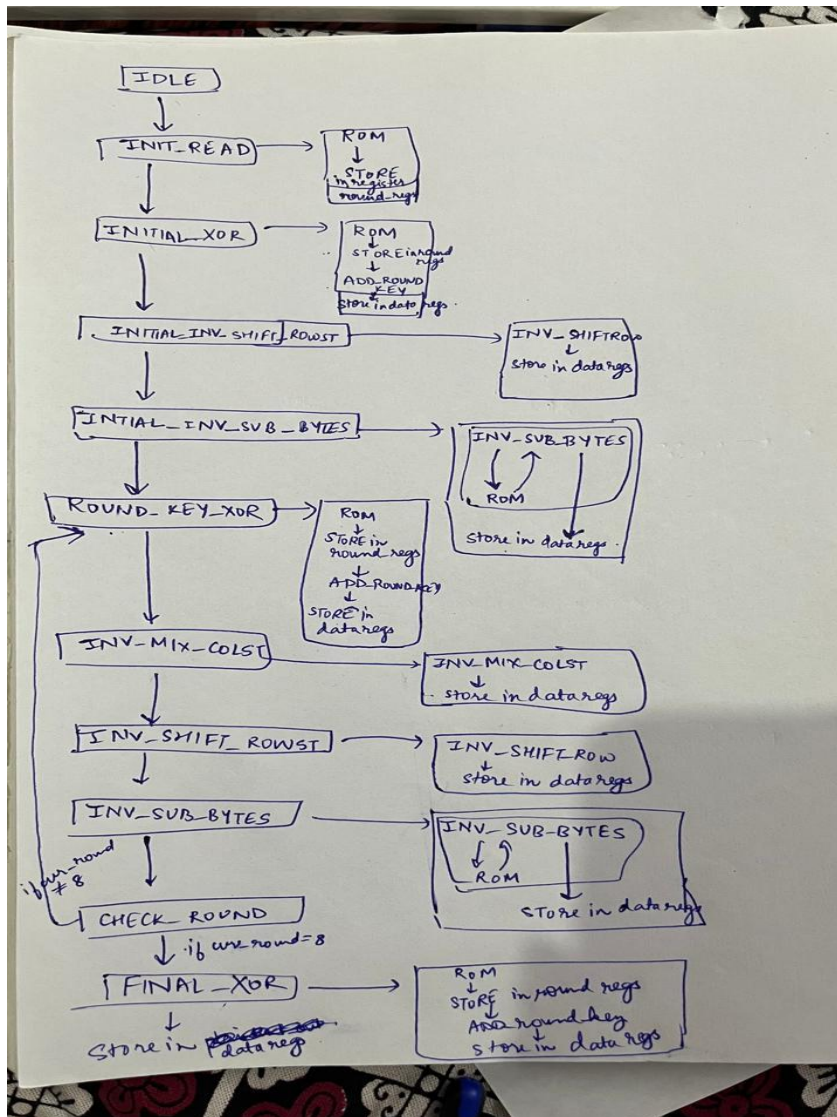 IDLE
INIT_READ
ROM
STORE
in register
round_regs
INITIAL_XOR
ROM
STORE in round
regs
ADD_ROUND
KEY
store in data regs.
INITIAL_INV_SHIFT_ROWST
INV_SHIFTROW
store in data regs
INTIAL_INV_SUB_BYTES
INV_SUB_BYTES
ROM
store in data regs.
ROUND_KEY_XOR
ROM
STORE in
round regs
ADD_ROUND_KEY
STORE in
data regs
INV_MIX_COLST
INV_MIX_COLST
store in data regs
INV_SHIFT_ROWST
INV_SHIFT_ROW
store in data regs
INV_SUB_BYTES
INV_SUB-BYTES
ROM
store in data regs
if curr_round
≠ 8
CHECK_ROUND
if curr_round=8
FINAL_XOR
ROM
STORE in round regs
ADD_round_key
store in data regs
store in
data regs